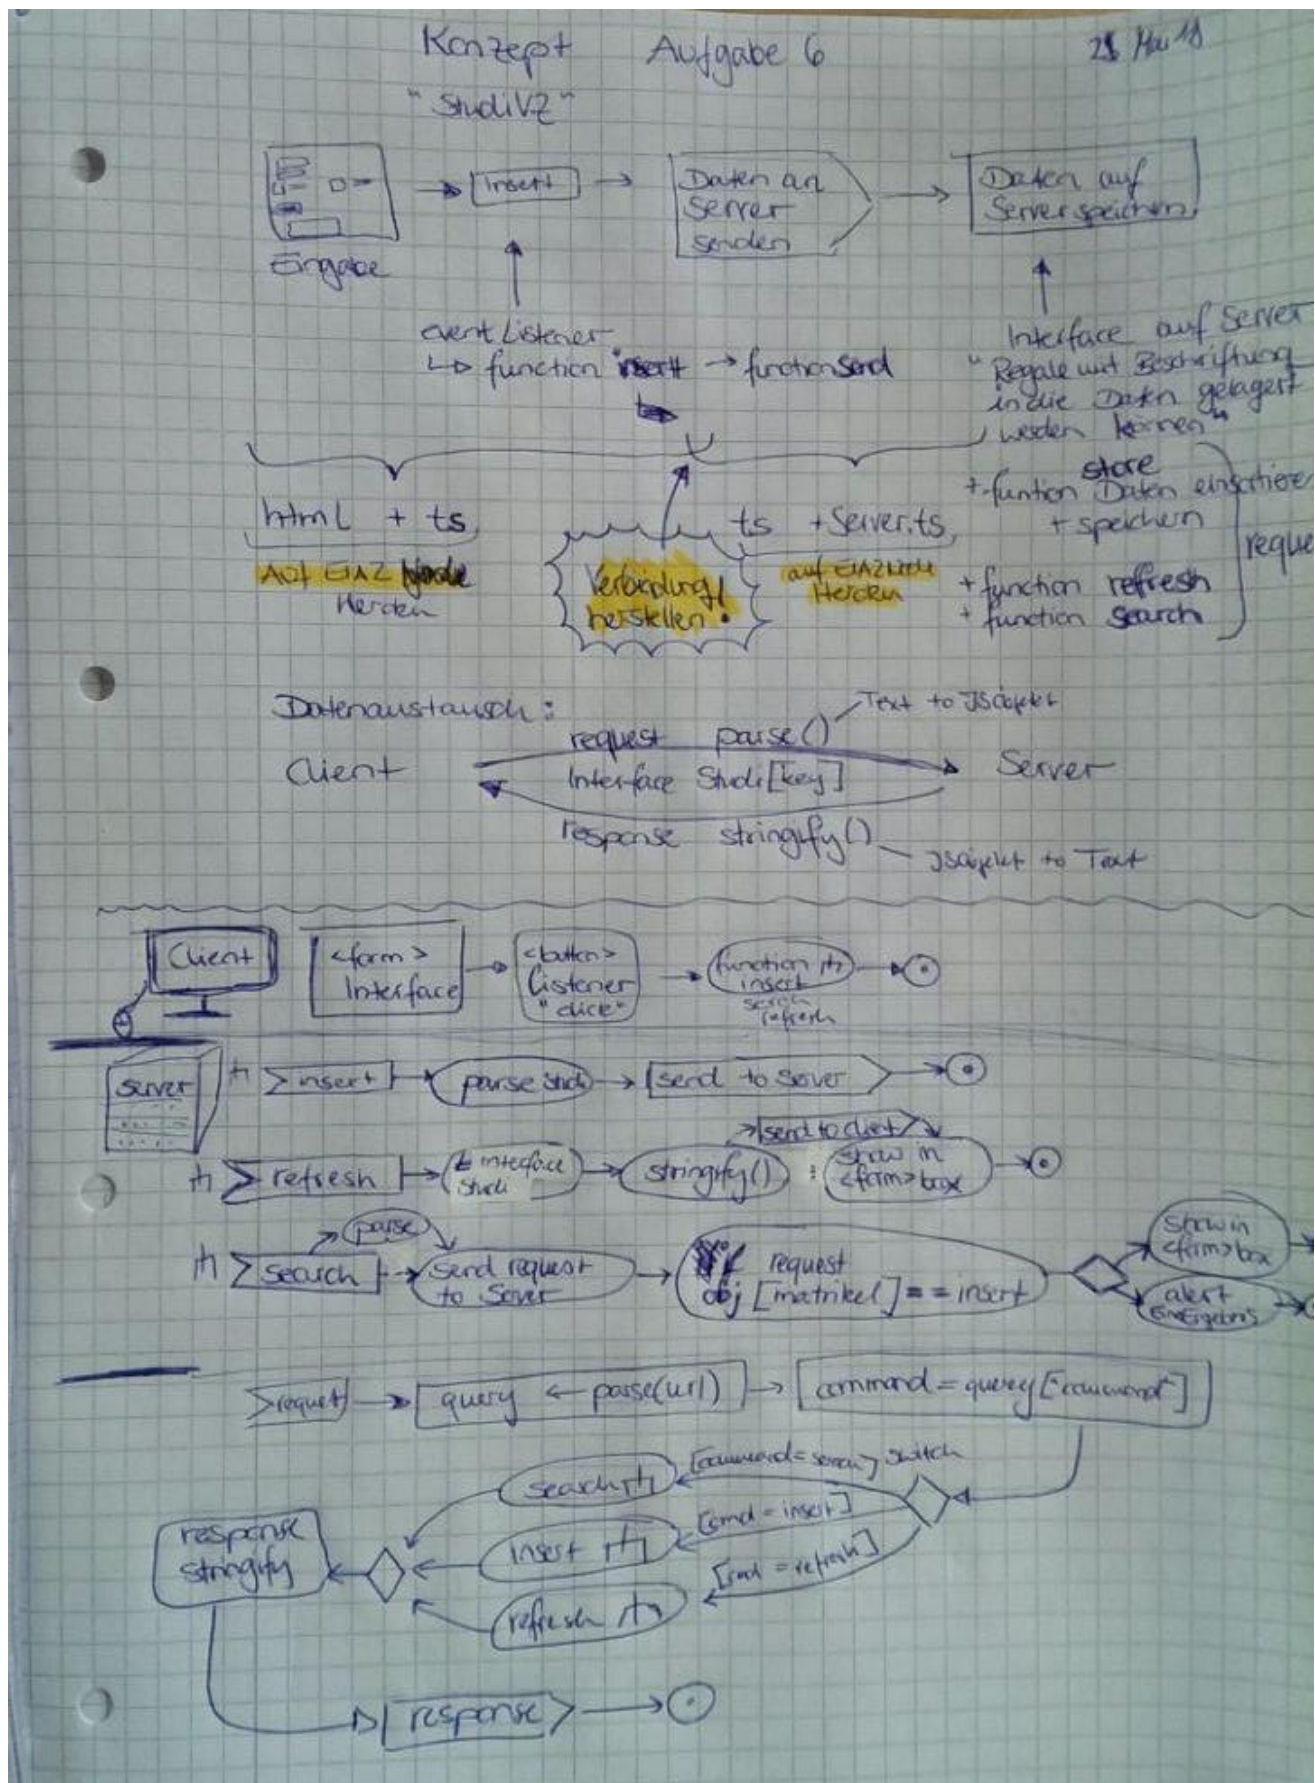 Konzept Aufgabe 6
21 Mai 18
"StudiVZ"
Eingabe
insert
Daten an
Server
senden
Daten auf
Server speichern
event Listener
↳ function insert → function send
Interface auf Server
"Regale mit Beschriftung
in die Daten gelagert
werden können"
store
+ funtion Daten einsortiere
+ speichern
+ function refresh
+ function search
reque
html + ts
Auf EIA2 Node
Verbindung
herstellen!
ts + Server.ts
auf EIA2 Node
Datenaustausch:
request parse()
Text to JSobjekt
Client
Interface Studi[key]
Server
response stringify()
JSobjekt to Text
Client
<form>
Interface
<button>
Listener
"click"
function
insert
search
refresh
Server
insert
parse Studi
send to Server
send to client
refresh
Interface
Studi
stringify()
show in
<form> box
parse
search
send request
to Server
request
obj [matrikel] == insert
show in
<form> box
alert
request
query ← parse(url)
command = query["command"]
[command = search] switch
search
[cmd = insert]
insert
[cmd = refresh]
refresh
response
stringify
response